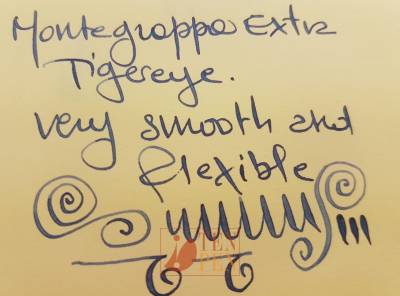 Montegrappa Extra
Tigereye.
very smooth and
flexible
TEN
PEN